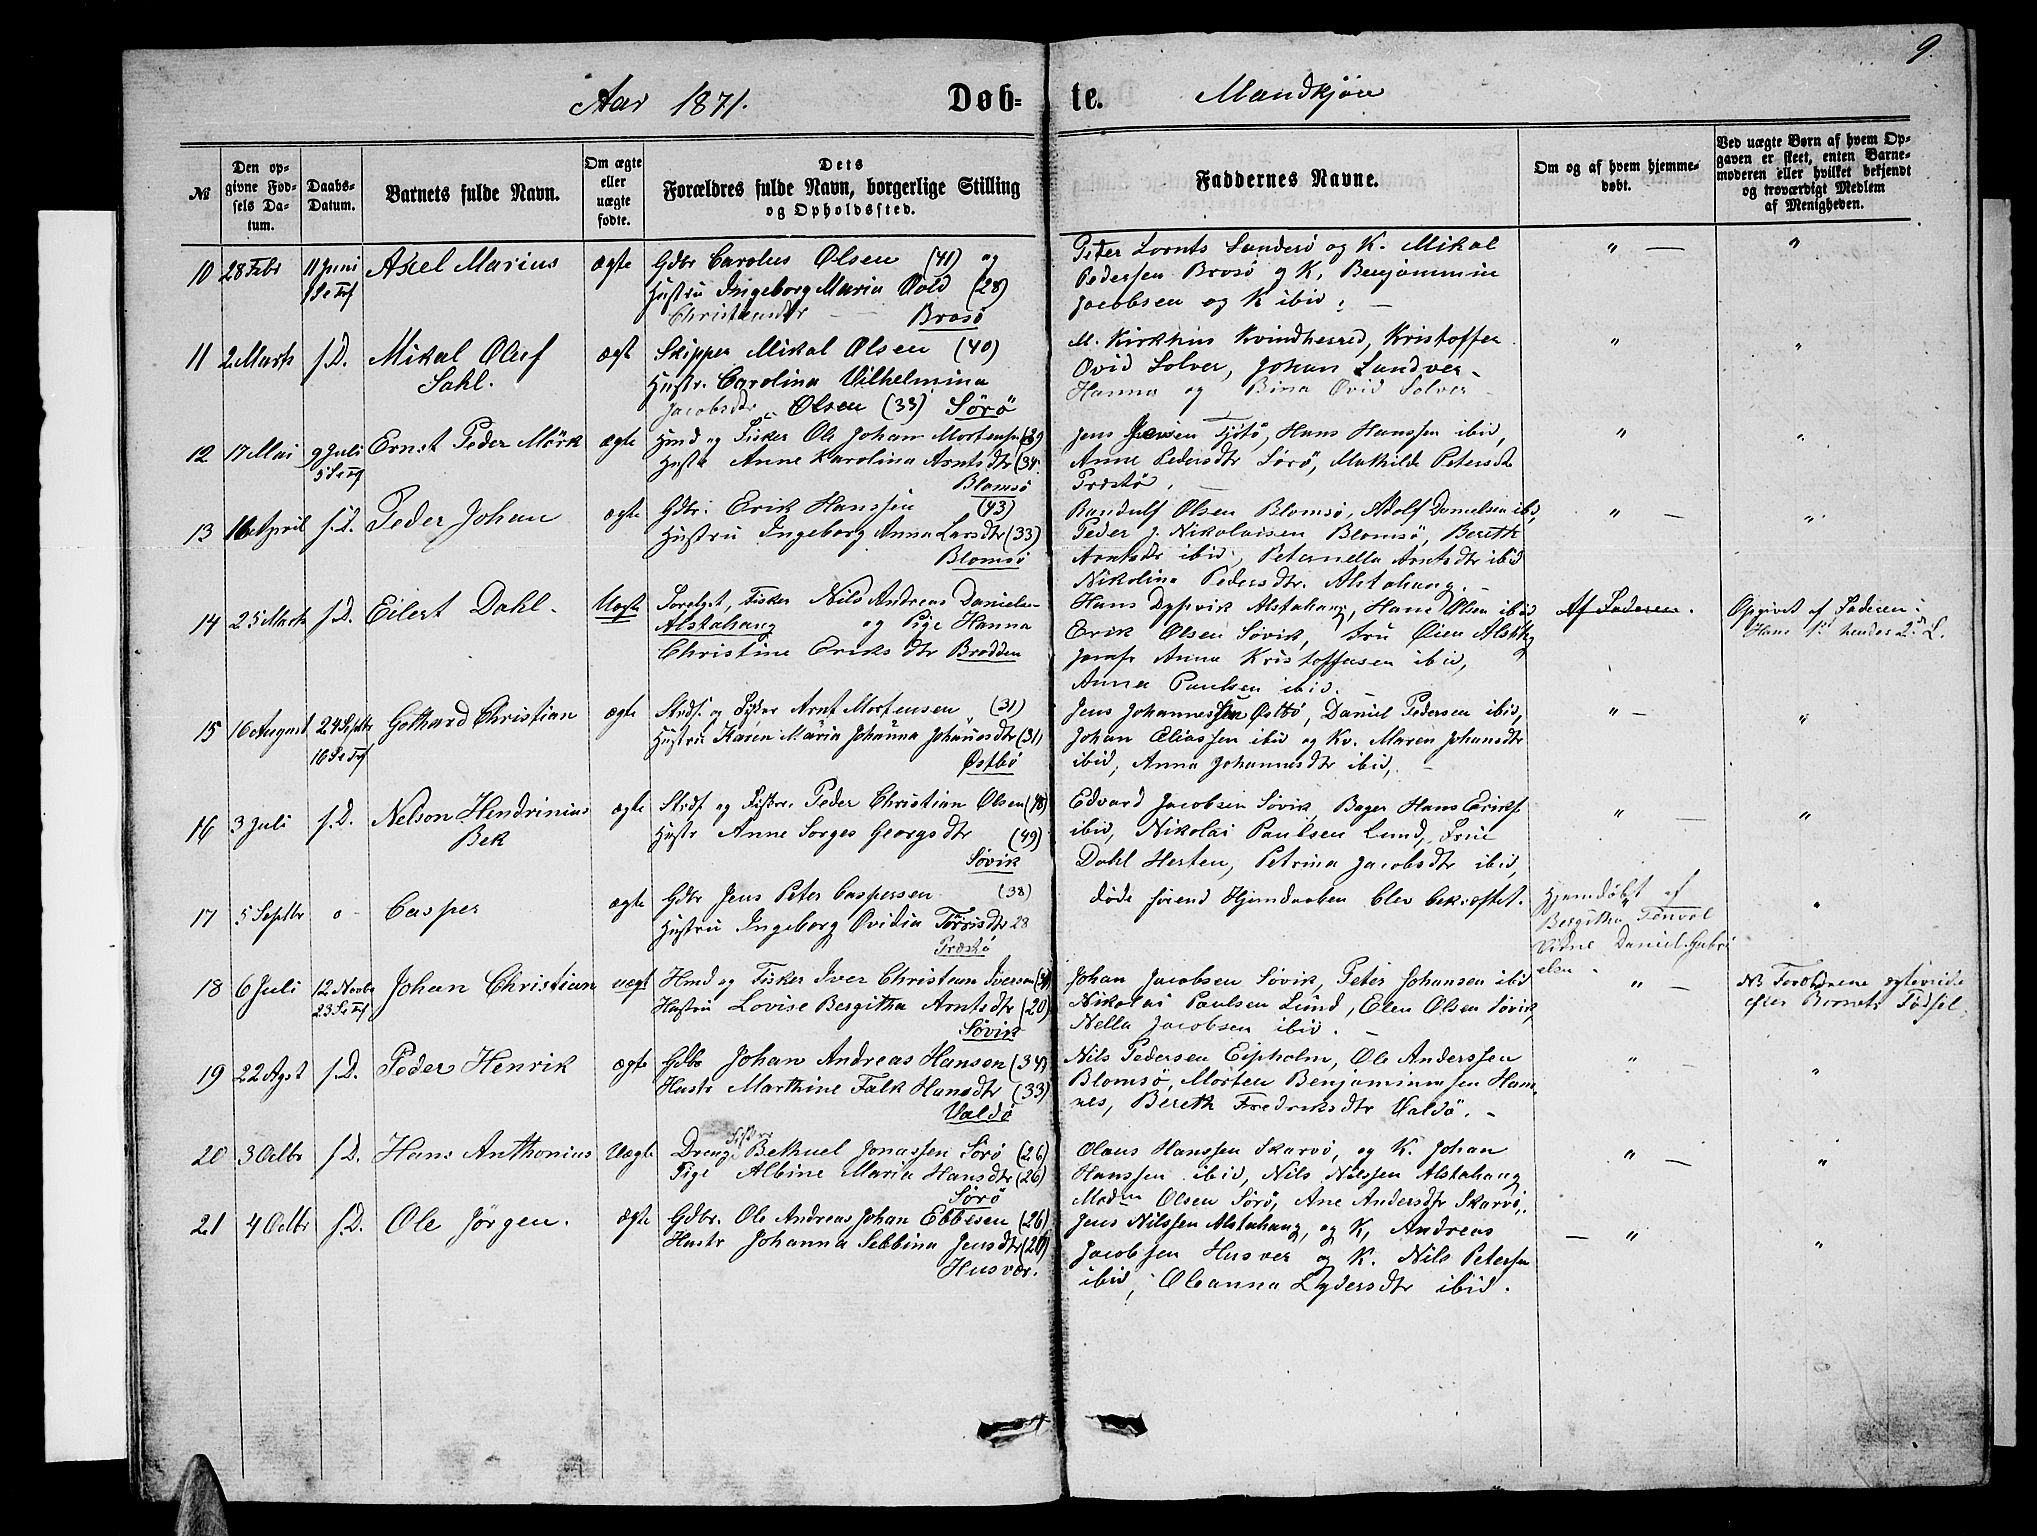 9.
Aar 1871. Døb- te. Mandkjøn
№
Den opgivne Fødsels Datum.
Daabs-Datum.
Barnets fulde Navn.
Om ægte eller uægte fødte.
Dets Forældres fulde Navn, borgerlige Stilling og Opholdssted.
Faddernes Navne.
Om og af hvem hjemmedøbt.
Ved uægte Børn af hvem Opgaven er skeet, enten Barnemoderen eller hvilket bekjendt og troværdigt Medlem af Menigheden.
10 28 Febr 11 Juni Axel Marius ægte Gdbr Carolus Olsen (41) og
Hustru Ingeborg Maria Qvld (28)
Christensdtr Brasø
Peter Lornts Sundsø og K. Mikal
Pedersen Brosø og K, Benjammin
Jacobsen og K ibid; –
" — "
11 2 Marts s. D. Mikal Oluf
Sahl.
ægte Skipper Mikal Olsen (40)
Hustr. Carolina Vilhelmina
Jacobsdtr Olsen (33) Sørø
M. Kirkhus Kvindherred, Kristoffer
Ovid Solver, Johan Sundver
Hanna og Bina Ovid Solver
" "
12 17 Mai 9 Juli Ernst Peder Mörk ægte Hmd og Fisker Ole Johan Mortensen (39
Hustr Anne Karolina Arntsdtr (34
Blomsö
Jens Jensen Tjøtø, Hans Hanssen ibid,
Anne Pedersdtr Sørø, Mathilde Petersdtr
Præstø. –
" "
13 16 April s. D. Peder Johan ægte Gdbr. Erik Hanssen (43)
Hustru Ingeborg Anna Larsdtr (33)
Blomsö
Randulf Olsen Blomsø, Adolf Danielsen ibd,
Peder J. Nikolaisen Blomsø, Bereth
Arntsdtr ibid, Petanella Arntsdtr ibid
Nikolina Pedersdtr. Alstahaug. –
" — "
14 25 Marts s. D. Eilert Dahl. Uægte Fisker Nils Andreas Danielsen
Alstahaug og Pige Hanna
Christine Eriksdtr Brodden
Hans Dypvik Alstahaug, Hans Olsen ibid
Erik Olsen Søvik, Fru Øien Alsthg
Jomfr Anna Kristoffersen ibid,
Anna Paulsen ibid. –
Af Faderen. Opgivet af Faderen:
Hans 1ste hendes 2det L.
15 16 August 24 Septbr Gothard Christian ægte Strdf. og Fisker Arnt Mortensen (31)
16 S e Trf Hustru Karen Maria Johanna Johansdtr (31)
Østbø
Jens Johannessen Østbö, Daniel Pedersen ibid,
Johan Eliassen ibid og Kv. Maren Johansdtr
ibid, Anna Johannesdtr ibid, –
" — "
16 3 Juli s. D. Nelson Hendrinius
Bek
ægte Strdf og Fisker Peder Christian Olsen (48)
Hustr Anne Sorges Georgsdtr (49)
Søvik
Edvard Jacobsen Søvik, Bager Hans Eriks
ibid, Nikolai Paulsen Lund, Frue
Dahl Hesten, Petrina Jacobsdtr ibid,
" — "
17 5 Septbr o Casper ægte Gdbr Jens Peter Caspersen (38)
Hustru Ingeborg Ovidia Torrisdtr 28
Præstø
døde førend Hjemdaaben blev bekræftet.
Hjemdøbt af
Bergitha Tenvol
Vidne Daniel Gabri
elsn.
"
18 6 Juli 12 Novbr Johan Christian uægt Hmd og Fisker Iver Christian Iversen
23 S e Trf Hustru Lovise Bergitha Arntsdtr (20)
Søvik
Johan Jacobsen Søvik, Peter Johansen ibid
Nikolai Paulsen Lund, Elen Olsen Søvik,
Nella Jacobsen ibid. –
" — NB Forældrene egteviede
efter Barnets Fødsel.
19 22 Agst s. D. Peder Henrik ægte Gdbr Johan Andreas Hansen (34)
Hustr Marthine Falk Hansdtr (33)
Valdö
Nils Pedersen Eipholm, Ole Anderssen
Blomsö, Morten Benjaminsen Ham-
nes, Bereth Fredriksdtr Valdö. –
" "
20 3 Octbr s. D. Hans Anthonius Uægte Dreng Fisker Bethuel Jonassen Sørø (26)
Pige Albine Maria Hansdtr (26)
Sörö
Olaus Hanssen Skarvø, og K. Johan
Hanssen ibid, Nils Nilssen Alstahaug
Madm Olsen Sørø, Ane Andersdtr Skarvø,
" — "
21 4 Octbr s. D. Ole Jörgen. ægte Gdbr. Ole Andreas Johan Ebbesen (26)
Hustr Johanna Sebbina Jensdtr (20)
Husvær.
Jens Nilssen Alstahaug, og K, Andreas
Jacobsen Husver og K. Nils Petersen
ibid, Oleanna Lydersdtr ibid.
— " "